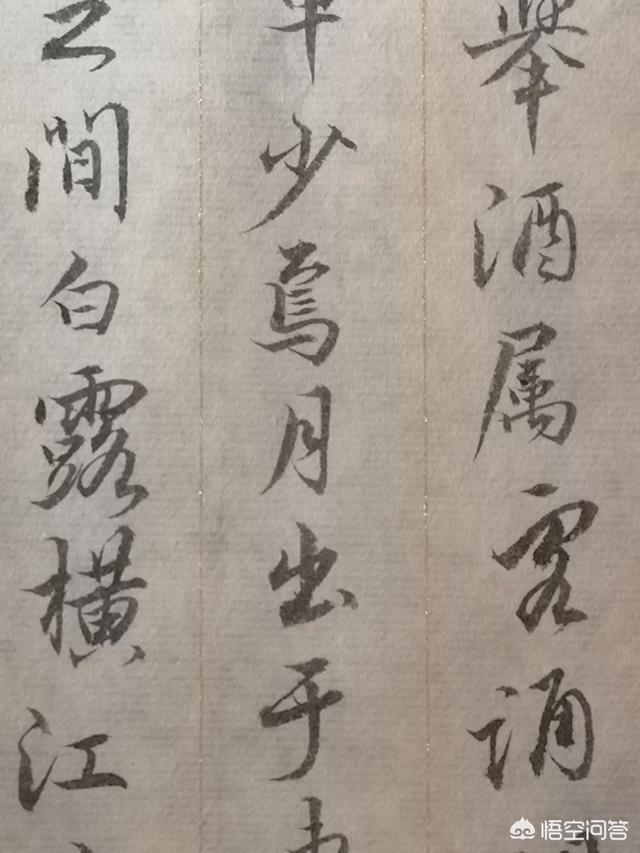 舉酒属客诵
章少焉月出于東
之間白露橫江
悟空问答